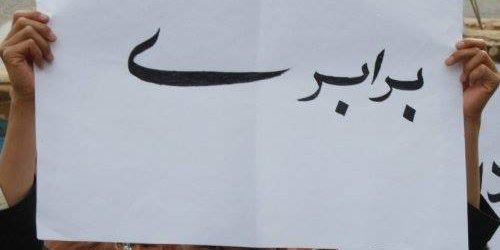 برابری